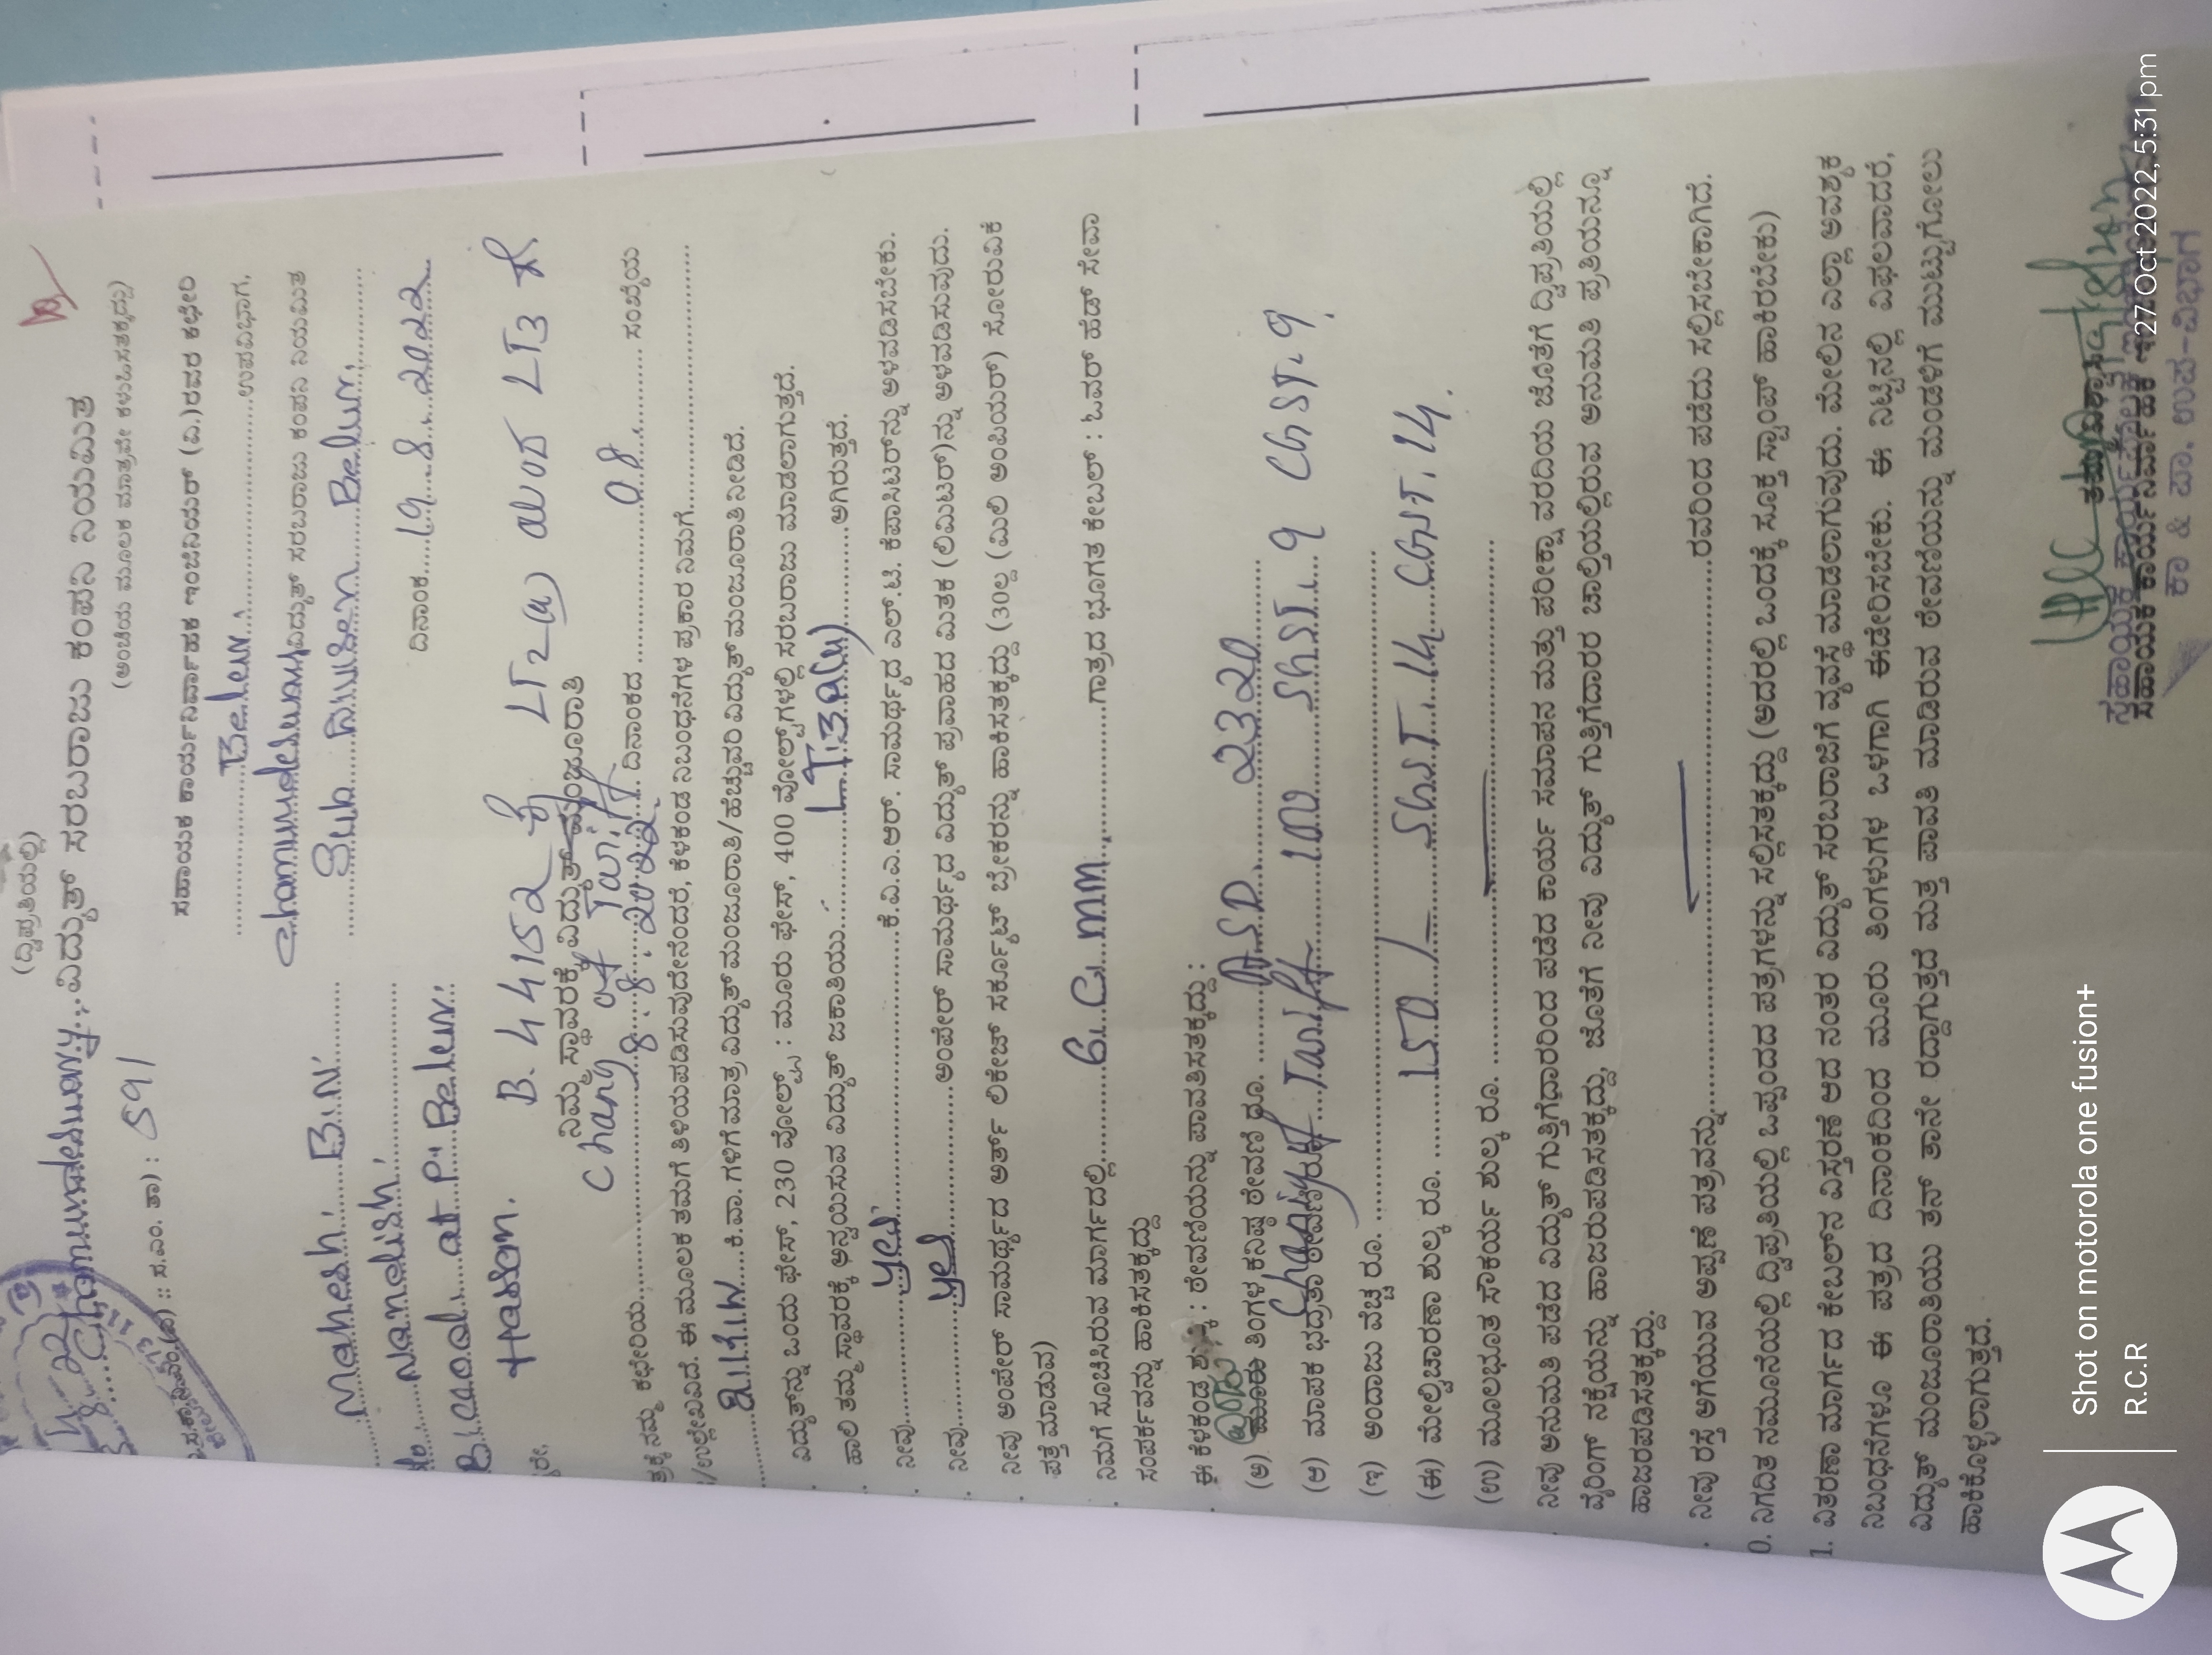 (ದ್ವಿಪ್ರತಿಯಲ್ಲಿ)
Chamundeshwary ವಿದ್ಯುತ್ ಸರಬರಾಜು ಕಂಪನಿ ನಿಯಮಿತ
(ಅಂಚೆಯ ಮೂಲಕ ಮಾತ್ರವೇ ಕಳುಹಿಸತಕ್ಕದ್ದು)
ಸ.ಎಂ. ತಾ) : 591
ಸಹಾಯಕ ಕಾರ್ಯನಿರ್ವಾಹಕ ಇಂಜಿನಿಯರ್ (ಎ.)ರವರ ಕಛೇರಿ
Belur. ಉಪವಿಭಾಗ,
ವಿದ್ಯುತ್ ಸರಬರಾಜು ಕಂಪನಿ ನಿಯಮಿತ
Mahesh. B.N. Sub Division Belur.
Nandish.
at P. Belur. ದಿನಾಂಕ 19. 8. 2022
Hassan. B. 44152 ಕ್ಕೆ LT2(a) ಯಿಂದ LT3 ಗೆ
ನಿಮ್ಮ ಸ್ಥಾವರಕ್ಕೆ ವಿದ್ಯುತ್ ಮಂಜೂರಾತಿ
Chang of Tariff
ನಮ್ಮ ಕಛೇರಿಯ 8. 8. 2022 ದಿನಾಂಕದ 08 ಸಂಖ್ಯೆಯ
/ಉಲ್ಲೇಖವಿದೆ. ಈ ಮೂಲಕ ತಮಗೆ ತಿಳಿಯಪಡಿಸುವುದೇನೆಂದರೆ, ಕೆಳಕಂಡ ನಿಬಂಧನೆಗಳ ಪ್ರಕಾರ ನಿಮಗೆ
ಕಿ.ವಾ. ಗಳಿಗೆ ಮಾತ್ರ ವಿದ್ಯುತ್ ಮಂಜೂರಾತಿ/ಹೆಚ್ಚುವರಿ ವಿದ್ಯುತ್ ಮಂಜೂರಾತಿ ನೀಡಿದೆ.
ವಿದ್ಯುತ್‌ನ್ನು ಒಂದು ಫೇಸ್, 230 ವೋಲ್ಟ್ಸ್ : ಮೂರು ಫೇಸ್, 400 ವೋಲ್ಟ್‌ಗಳಲ್ಲಿ ಸರಬರಾಜು ಮಾಡಲಾಗುತ್ತದೆ.
ಹಾಲಿ ತಮ್ಮ ಸ್ಥಾವರಕ್ಕೆ ಅನ್ವಯಿಸುವ ವಿದ್ಯುತ್ ಜಕಾತಿಯು ಆಗಿರುತ್ತದೆ.
ನೀವು yes ಕೆ.ವಿ.ಎ.ಆರ್. ಸಾಮರ್ಥ್ಯದ ಎಲ್.ಟಿ. ಕೆಪಾಸಿಟರ್‌ನ್ನು ಅಳವಡಿಸಬೇಕು.
ನೀವು yes ಅಂಪೇರ್ ಸಾಮರ್ಥ್ಯದ ವಿದ್ಯುತ್ ಪ್ರವಾಹದ ಮಿತಕ (ಲಿಮಿಟರ್)ನ್ನು ಅಳವಡಿಸುವುದು.
ನೀವು ಅಂಪೇರ್ ಸಾಮರ್ಥ್ಯದ ಅರ್ತ್ ಲಿಕೇಜ್ ಸರ್ಕ್ಯೂಟ್ ಬ್ರೇಕರನ್ನು ಹಾಕಿಸತಕ್ಕದ್ದು (30ಲ್ಲ (ಮಿಲಿ ಅಂಪಿಯರ್) ಸೋರುವಿಕೆ
ಪತ್ತೆ ಮಾಡುವ)
ನಿಮಗೆ ಸೂಚಿಸಿರುವ ಮಾರ್ಗದಲ್ಲಿ 6.C. mm. ಗಾತ್ರದ ಭೂಗತ ಕೇಬಲ್ : ಓವರ್ ಹೆಡ್ ಸೇವಾ
ಸಂಪರ್ಕವನ್ನು ಹಾಕಿಸತಕ್ಕದ್ದು
ಈ ಕೆಳಕಂಡ : ಠೇವಣಿಯನ್ನು ಪಾವತಿಸತಕ್ಕದ್ದು :
(ಅ) ತಿಂಗಳ ಕನಿಷ್ಠ ಠೇವಣಿ ರೂ. A.S.D. 2320
(ಆ) ಮಾಪಕ ಭದ್ರತಾ ಠೇವಣಿ ರೂ. Tariff 100 SGST. 9 CGST. 9.
(ಇ) ಅಂದಾಜು ವೆಚ್ಚ ರೂ.
(ಈ) ಮೇಲ್ವಿಚಾರಣಾ ಶುಲ್ಕ ರೂ. 150/- SGST. 14 CGST. 14.
(ಉ) ಮೂಲಭೂತ ಸೌಕರ್ಯ ಶುಲ್ಕ ರೂ.
ನೀವು ಅನುಮತಿ ಪಡೆದ ವಿದ್ಯುತ್ ಗುತ್ತಿಗೆದಾರರಿಂದ ಪಡೆದ ಕಾರ್ಯ ಸಮಾಪನ ಮತ್ತು ಪರೀಕ್ಷಾ ವರದಿಯ ಜೊತೆಗೆ ದ್ವಿಪ್ರತಿಯಲ್ಲಿ
ವೈರಿಂಗ್ ನಕ್ಷೆಯನ್ನು ಹಾಜರುಪಡಿಸತಕ್ಕದ್ದು, ಜೊತೆಗೆ ನೀವು ವಿದ್ಯುತ್ ಗುತ್ತಿಗೆದಾರರ ಚಾಲ್ತಿಯಲ್ಲಿರುವ ಅನುಮತಿ ಪ್ರತಿಯನ್ನೂ
ಹಾಜರಪಡಿಸತಕ್ಕದ್ದು.
ನೀವು ರಸ್ತೆ ಅಗೆಯುವ ಅಪ್ಪಣೆ ಪತ್ರವನ್ನು ರವರಿಂದ ಪಡೆದು ಸಲ್ಲಿಸಬೇಕಾಗಿದೆ.
0. ನಿಗದಿತ ನಮೂನೆಯಲ್ಲಿ ದ್ವಿಪ್ರತಿಯಲ್ಲಿ ಒಪ್ಪಂದದ ಪತ್ರಗಳನ್ನು ಸಲ್ಲಿಸತಕ್ಕದ್ದು (ಅದರಲ್ಲಿ ಒಂದಕ್ಕೆ ಸೂಕ್ತ ಸ್ಟಾಂಪ್ ಹಾಕಿರಬೇಕು)
1. ವಿತರಣಾ ಮಾರ್ಗದ ಕೇಬಲ್‌ನ ವಿಸ್ತರಣೆ ಆದ ನಂತರ ವಿದ್ಯುತ್ ಸರಬರಾಜಿಗೆ ವ್ಯವಸ್ಥೆ ಮಾಡಲಾಗುವುದು. ಮೇಲಿನ ಎಲ್ಲಾ ಅವಶ್ಯಕ
ನಿಬಂಧನೆಗಳೂ ಈ ಪತ್ರದ ದಿನಾಂಕದಿಂದ ಮೂರು ತಿಂಗಳುಗಳ ಒಳಗಾಗಿ ಈಡೇರಿಸಬೇಕು. ಈ ನಿಟ್ಟಿನಲ್ಲಿ ವಿಫಲವಾದರೆ,
ವಿದ್ಯುತ್ ಮಂಜೂರಾತಿಯು ತನ್ ತಾನೇ ರದ್ದಾಗುತ್ತದೆ ಮತ್ತ ಪಾವತಿ ಮಾಡಿರುವ ಠೇವಣಿಯನ್ನು ಮಂಡಳಿಗೆ ಮುಟ್ಟುಗೋಲು
ಹಾಕಿಕೊಳ್ಳಲಾಗುತ್ತದೆ.
ತಮ್ಮ ವಿಶ್ವಾಸಿ
ಸಹಾಯಕ ಕಾರ್ಯನಿರ್ವಾಹಕ
ಕಾ & ಪಾ. ಉಪ-ವಿಭಾಗ
Shot on motorola one fusion+
R.C.R
27 Oct 2022, 5:31 pm